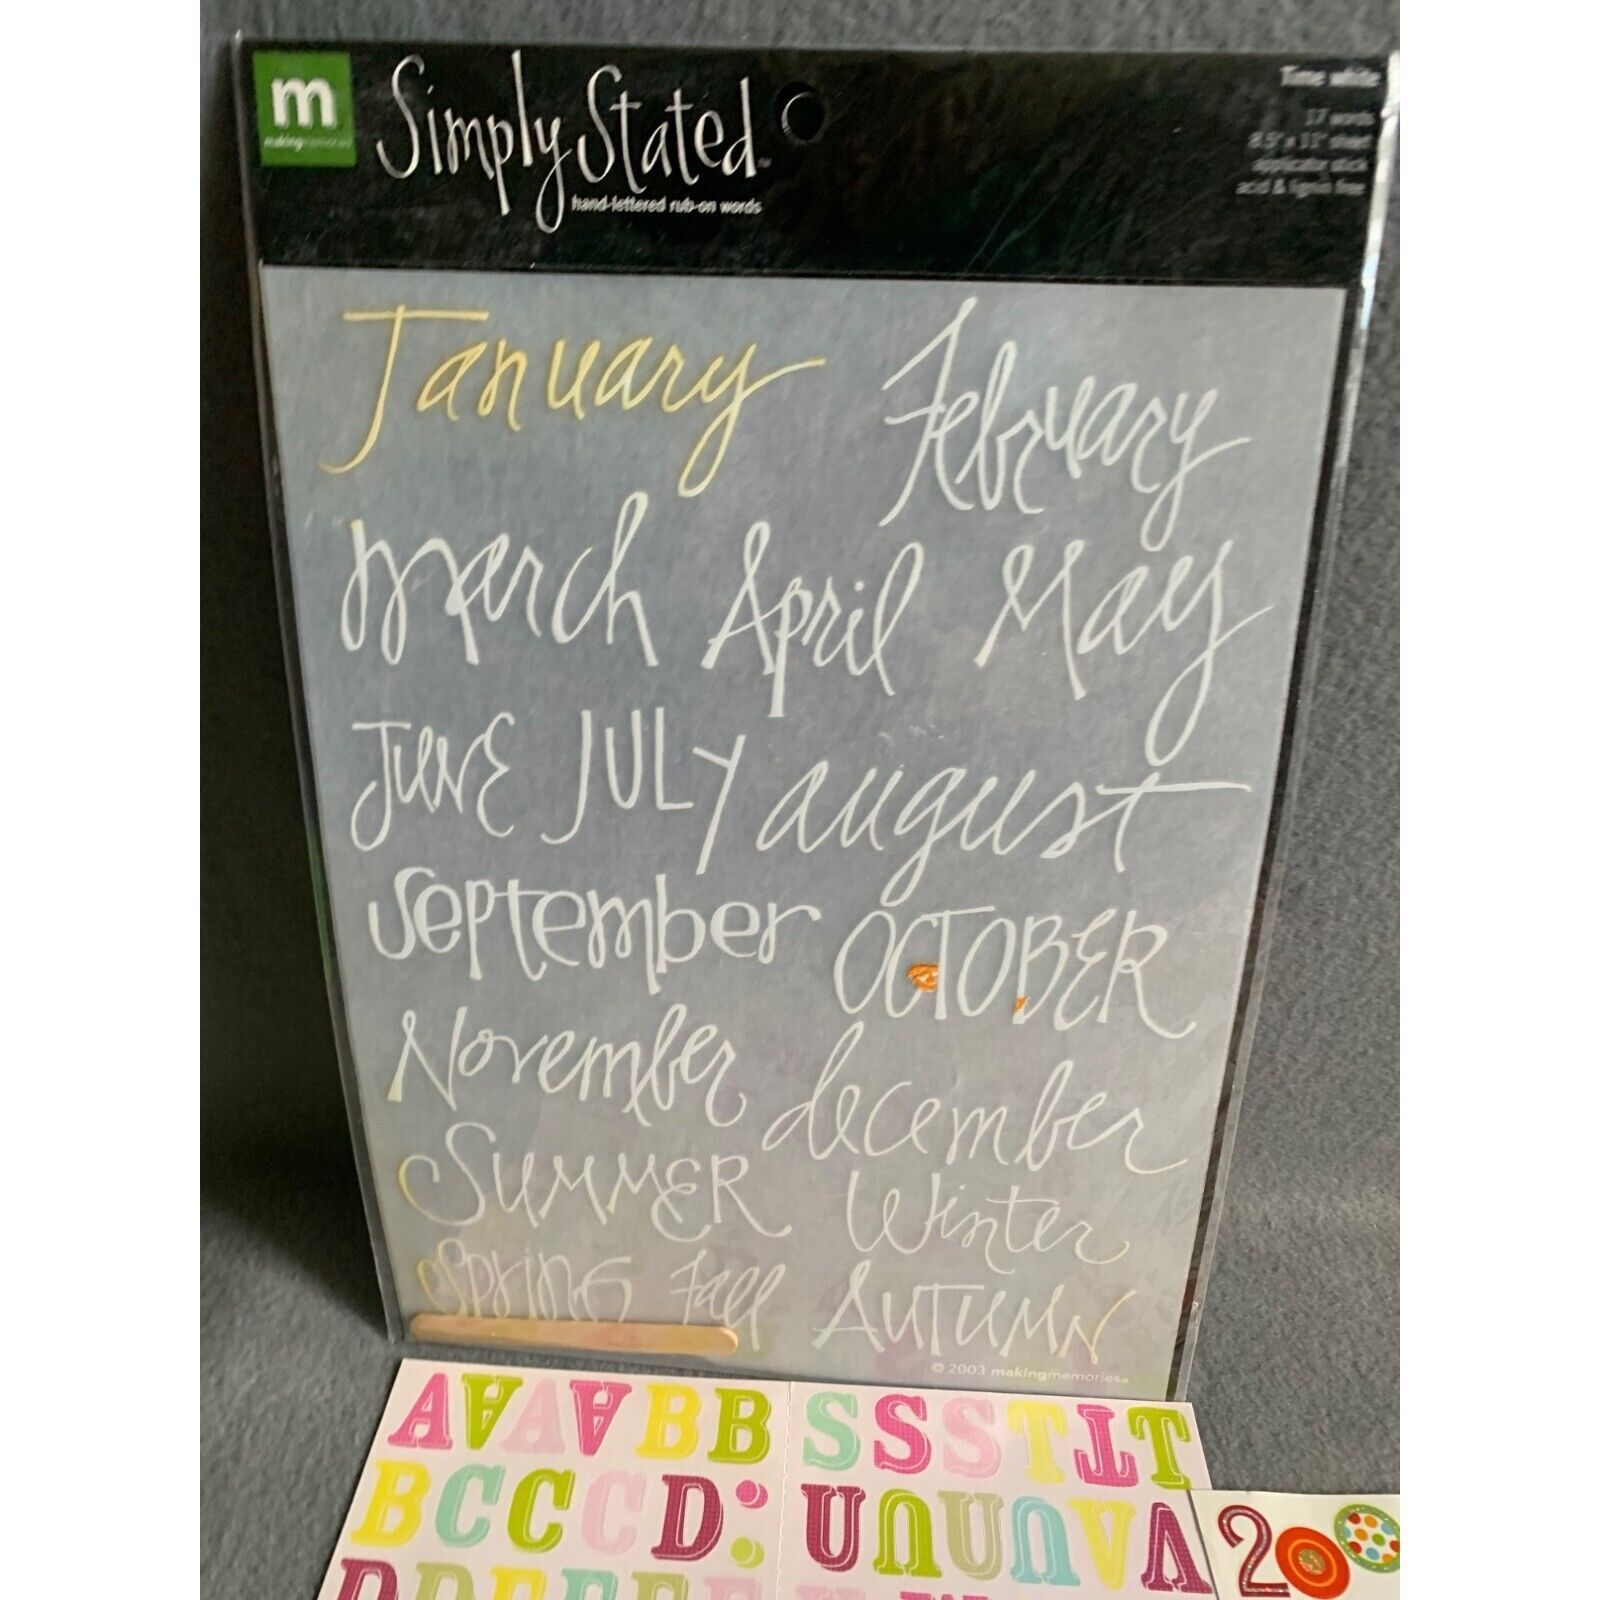 m
makingmemories
Simply Stated™
hand-lettered rub-on words
Time white
17 words
8.5" x 11" sheet
applicator stick
acid & lignin free
January February
march April May
JUNE JULY august
september OCTOBER
November december
SUMMER Winter
SPRING Fall AUTUMN
© 2003 makingmemories®
A A A A B B S S S T T T
B C C C D : U U U U V V V
200